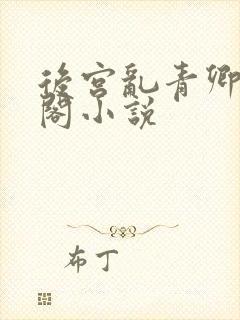 後宮亂青卿
閣小說
布丁